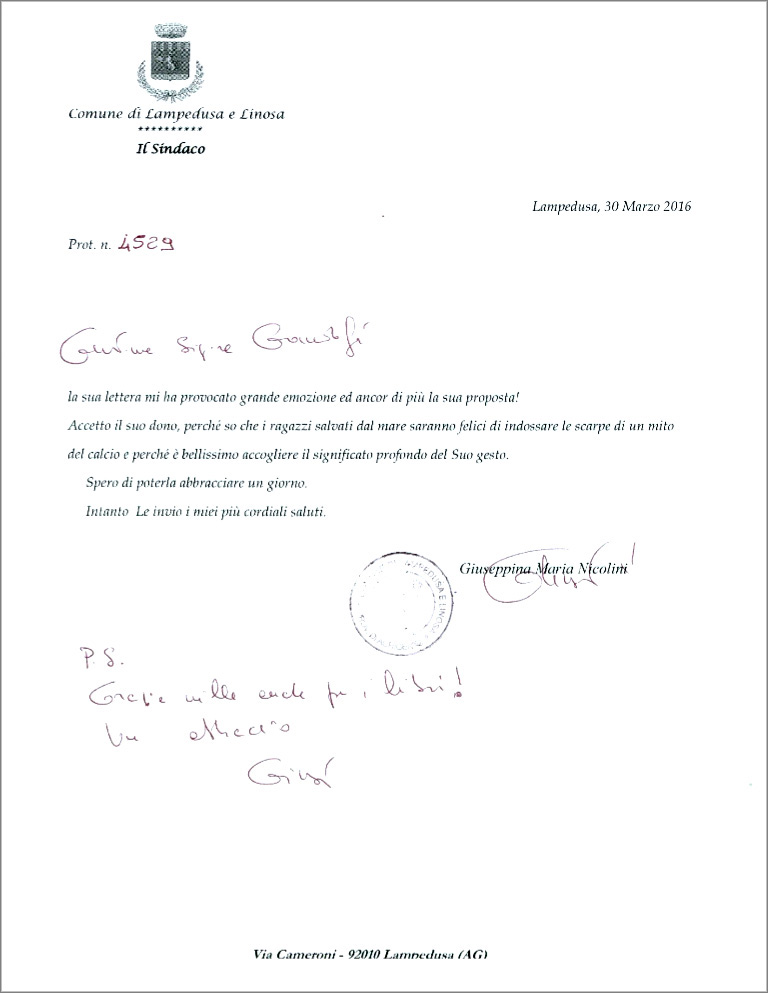 Comune di Lampedusa e Linosa
**********
Il Sindaco
Lampedusa, 30 Marzo 2016
Prot. n. 4529
la sua lettera mi ha provocato grande emozione ed ancor di più la sua proposta!
Accetto il suo dono, perché so che i ragazzi salvati dal mare saranno felici di indossare le scarpe di un mito
del calcio e perché è bellissimo accogliere il significato profondo del Suo gesto.
Spero di poterla abbracciare un giorno.
Intanto Le invio i miei più cordiali saluti.
Giuseppina Maria Nicolini
P.S.
Grazie mille anche per i libri!
Un abbraccio
Giusi
Via Cameroni - 92010 Lampedusa (AG)